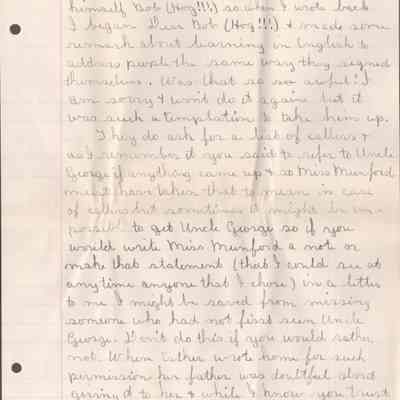 himself Bob (Hog!!!) so when I wrote back
I began Dear Bob (Hog!!!) & made some
remark about learning in English to
address people the same way they signed
themselves. Was that so so awful? I
am sorry & won't do it again but it
was such a temptation to take him up.
They do ask for a list of callers &
as I remember it you said to refer to Uncle
George if anything came up & so Miss Munford
must have taken that to mean in case
of callers but sometimes it might be im-
possible to get Uncle George so if you
would write Miss Munford a note or
make that statement (that I could see at
anytime anyone that I chose) in a letter
to me I might be saved from missing
someone who had not first seen Uncle
George. Don't do this if you would rather
not. When Esther wrote home for such
permission her father was doubtful about
giving it to her & while I know you trust